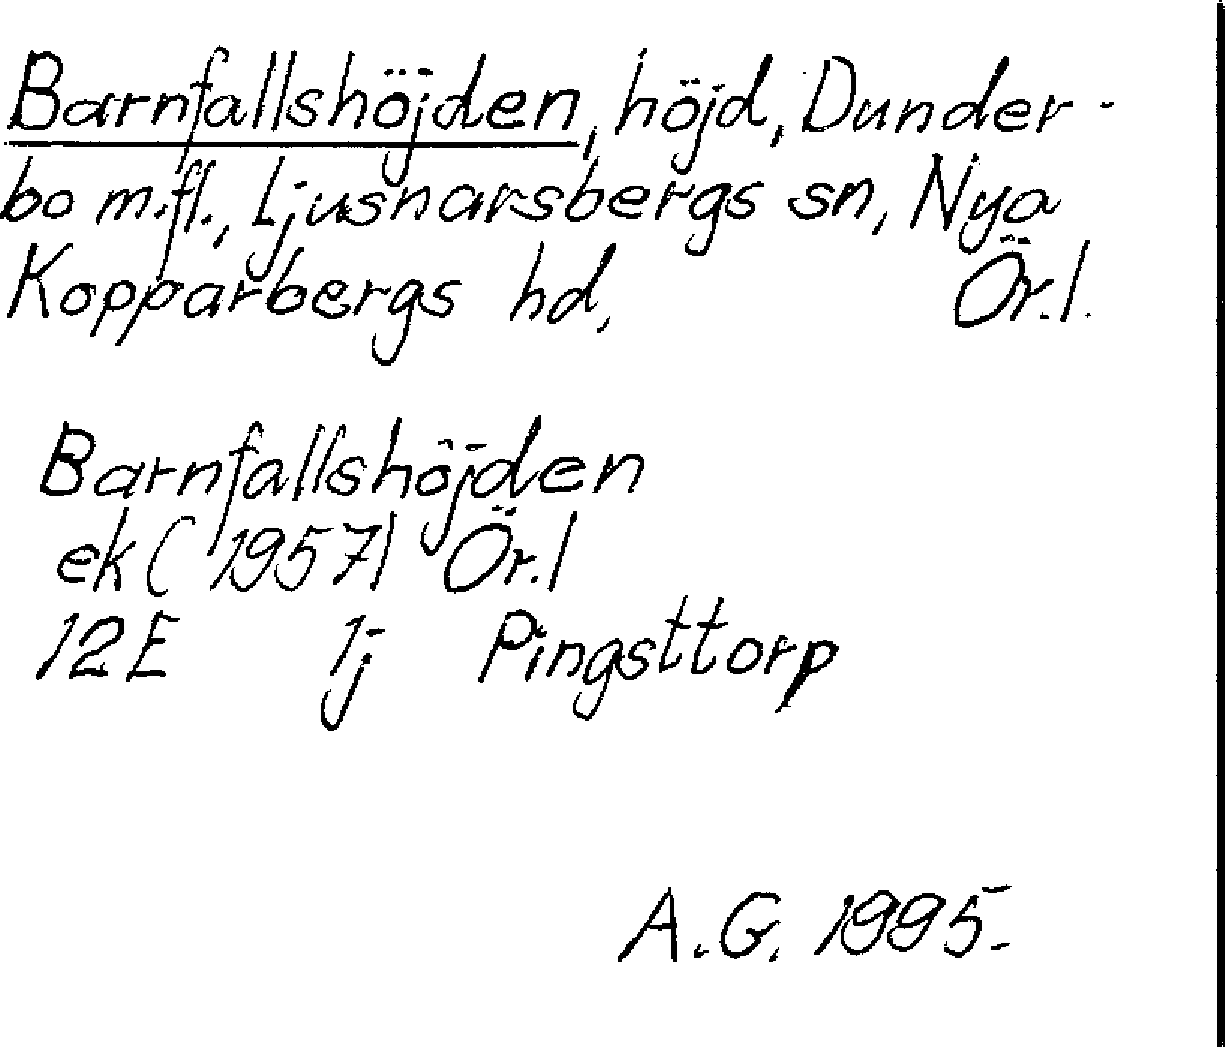 Barnfallshöjden, höjd, Dunder-
bo m.fl., Ljusnarsbergs sn, Nya
Kopparbergs hd, Ör.l.
Barnfallshöjden
ek (1957) Ör.l
12E 1j Pingsttorp
A.G. 1995.